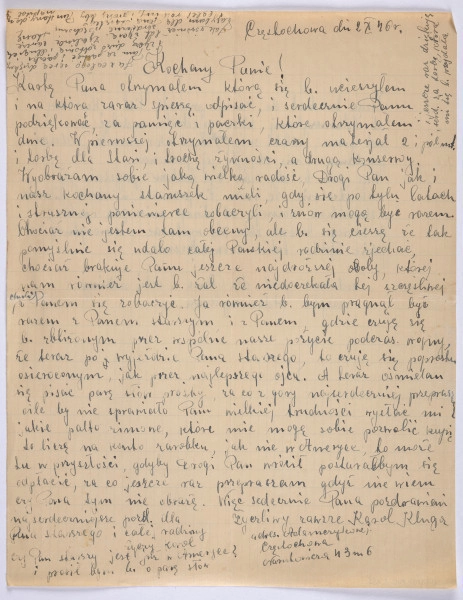 Częstochowa dn. 2 X 46 r.
Kochany Panie!
Kartę Pana otrzymałem którą się b. ucieszyłem
i na którą zaraz spieszę odpisać, i serdecznie Panu
podziękować, za pamięć i paczki, które otrzymałem
dwie. W pierwszej otrzymałem czarny materjał 2
i torbę dla Stasi, trochę żywności, a drugą konserwy.
Wyobrażam sobie jaką wielką radość Drogi Pan jak i
nasz kochany staruszek mieli, gdy się po tylu latach
i strasznej poniewierce zobaczyli i znów mogą być razem
Chociaż nie jestem tam obecny, ale b. się cieszę że tak
pomyślnie się udało całej Pańskiej rodzinie zjechać
chociaż brakuje Panu jeszcze najdroższej osoby, której
nam również jest b. żal że niedoczekała tej szczęśliwej
chwili, z Panem się zobaczyć. Ja również b. bym pragnął być
razem z Panem starszym i z Panem, gdzie czuję się
b. zbliżonym przez wspólne nasze przeżycie podczas wojny,
że teraz po wyjeździe Pana starszego, to czuję się poprostu
osieroconym, jak przez najlepszego ojca. A teraz ośmielam
się pisać parę słów prośby za co z góry najserdeczniej przepraszam
oile by nie sprawiało Panu wielkiej trudności wysłać mi
jakie palto zimowe, które nie mogę sobie pozwolić kupić
to liczę na konto zarobku, jak nie w Ameryce, to może
tu w przyszłości, gdyby Drogi Pan wrócił postarałbym się
odpłacić, za co jeszcze raz przepraszam gdyż nie wiem
czy Pana tym nie obrażę. Więc serdecznie Pana pozdrawiam
najserdeczniejsze pozd. dla Życzliwy zawsze Karol Kluga
Pana starszego i całej rodziny
życzy Karol
adres:
Częstochowa
43 m 6
Czy Pan starszy jest już w Ameryce?
i prosić bym b. o parę słów